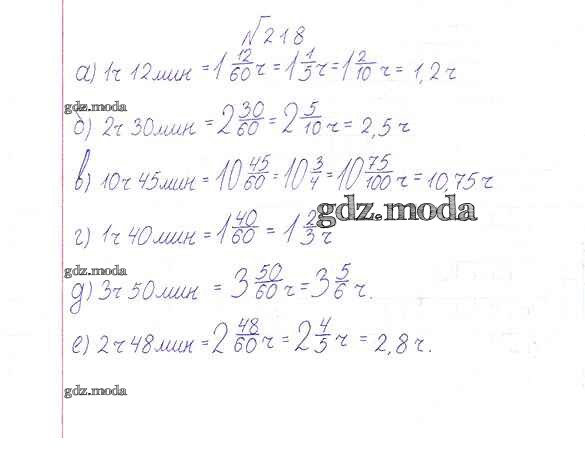 №218
а) 1ч 12мин = 1 12/60 ч = 1 1/5 ч = 1 2/10 ч = 1,2 ч
gdz.moda
б) 2ч 30мин = 2 30/60 = 2 5/10 ч = 2,5 ч
в) 10ч 45мин = 10 45/60 = 10 3/4 = 10 75/100 ч = 10,75 ч
gdz.moda
г) 1ч 40мин = 1 40/60 = 1 2/3 ч
gdz.moda
д) 3ч 50мин = 3 50/60 ч = 3 5/6 ч.
е) 2ч 48мин = 2 48/60 ч = 2 4/5 ч = 2,8 ч.
gdz.moda